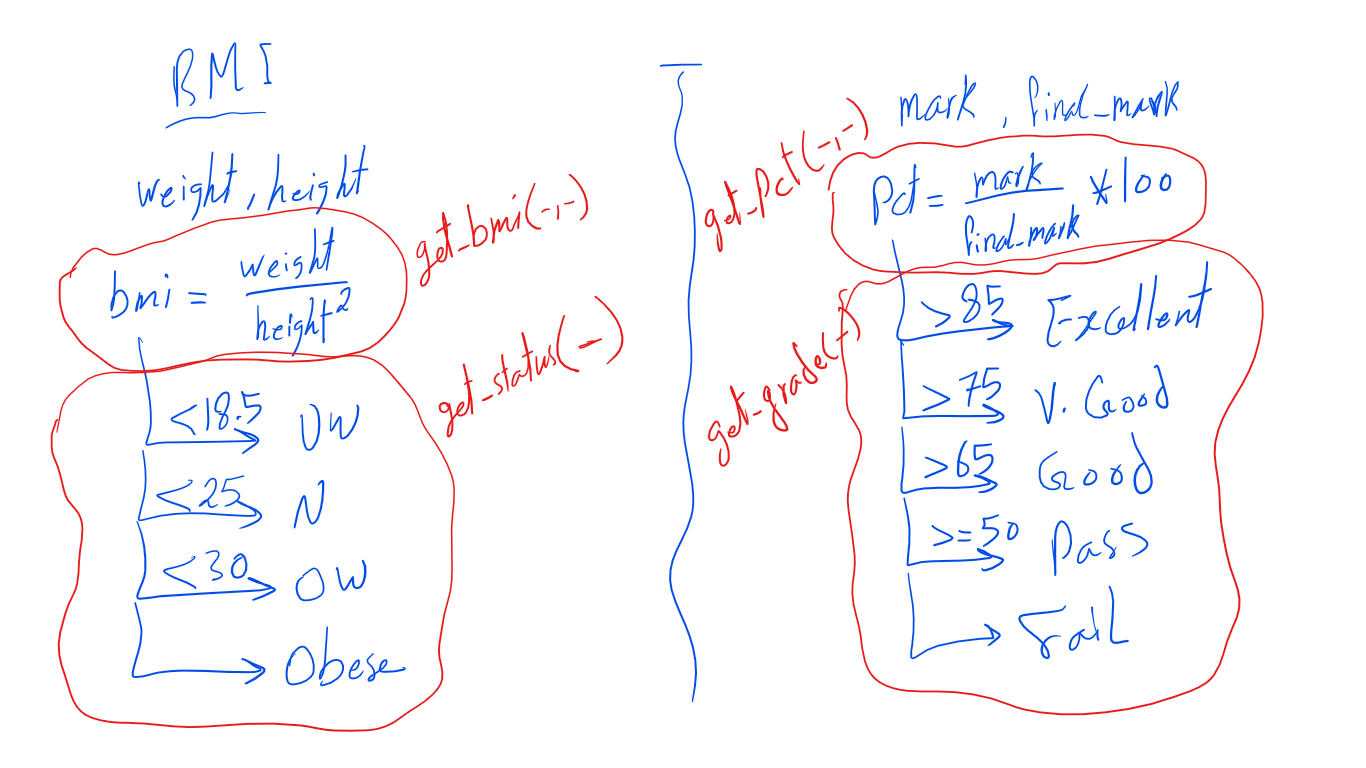 BMI
weight, height
bmi = weight / height²
get_bmi(-,-)
get_status(-)
<18.5 UW
<25 N
<30 OW
Obese
mark, final_mark
get_Pct(-,-)
Pct = mark / final_mark * 100
get_grade(-)
>85 Excellent
>75 V. Good
>65 Good
>=50 Pass
Fail